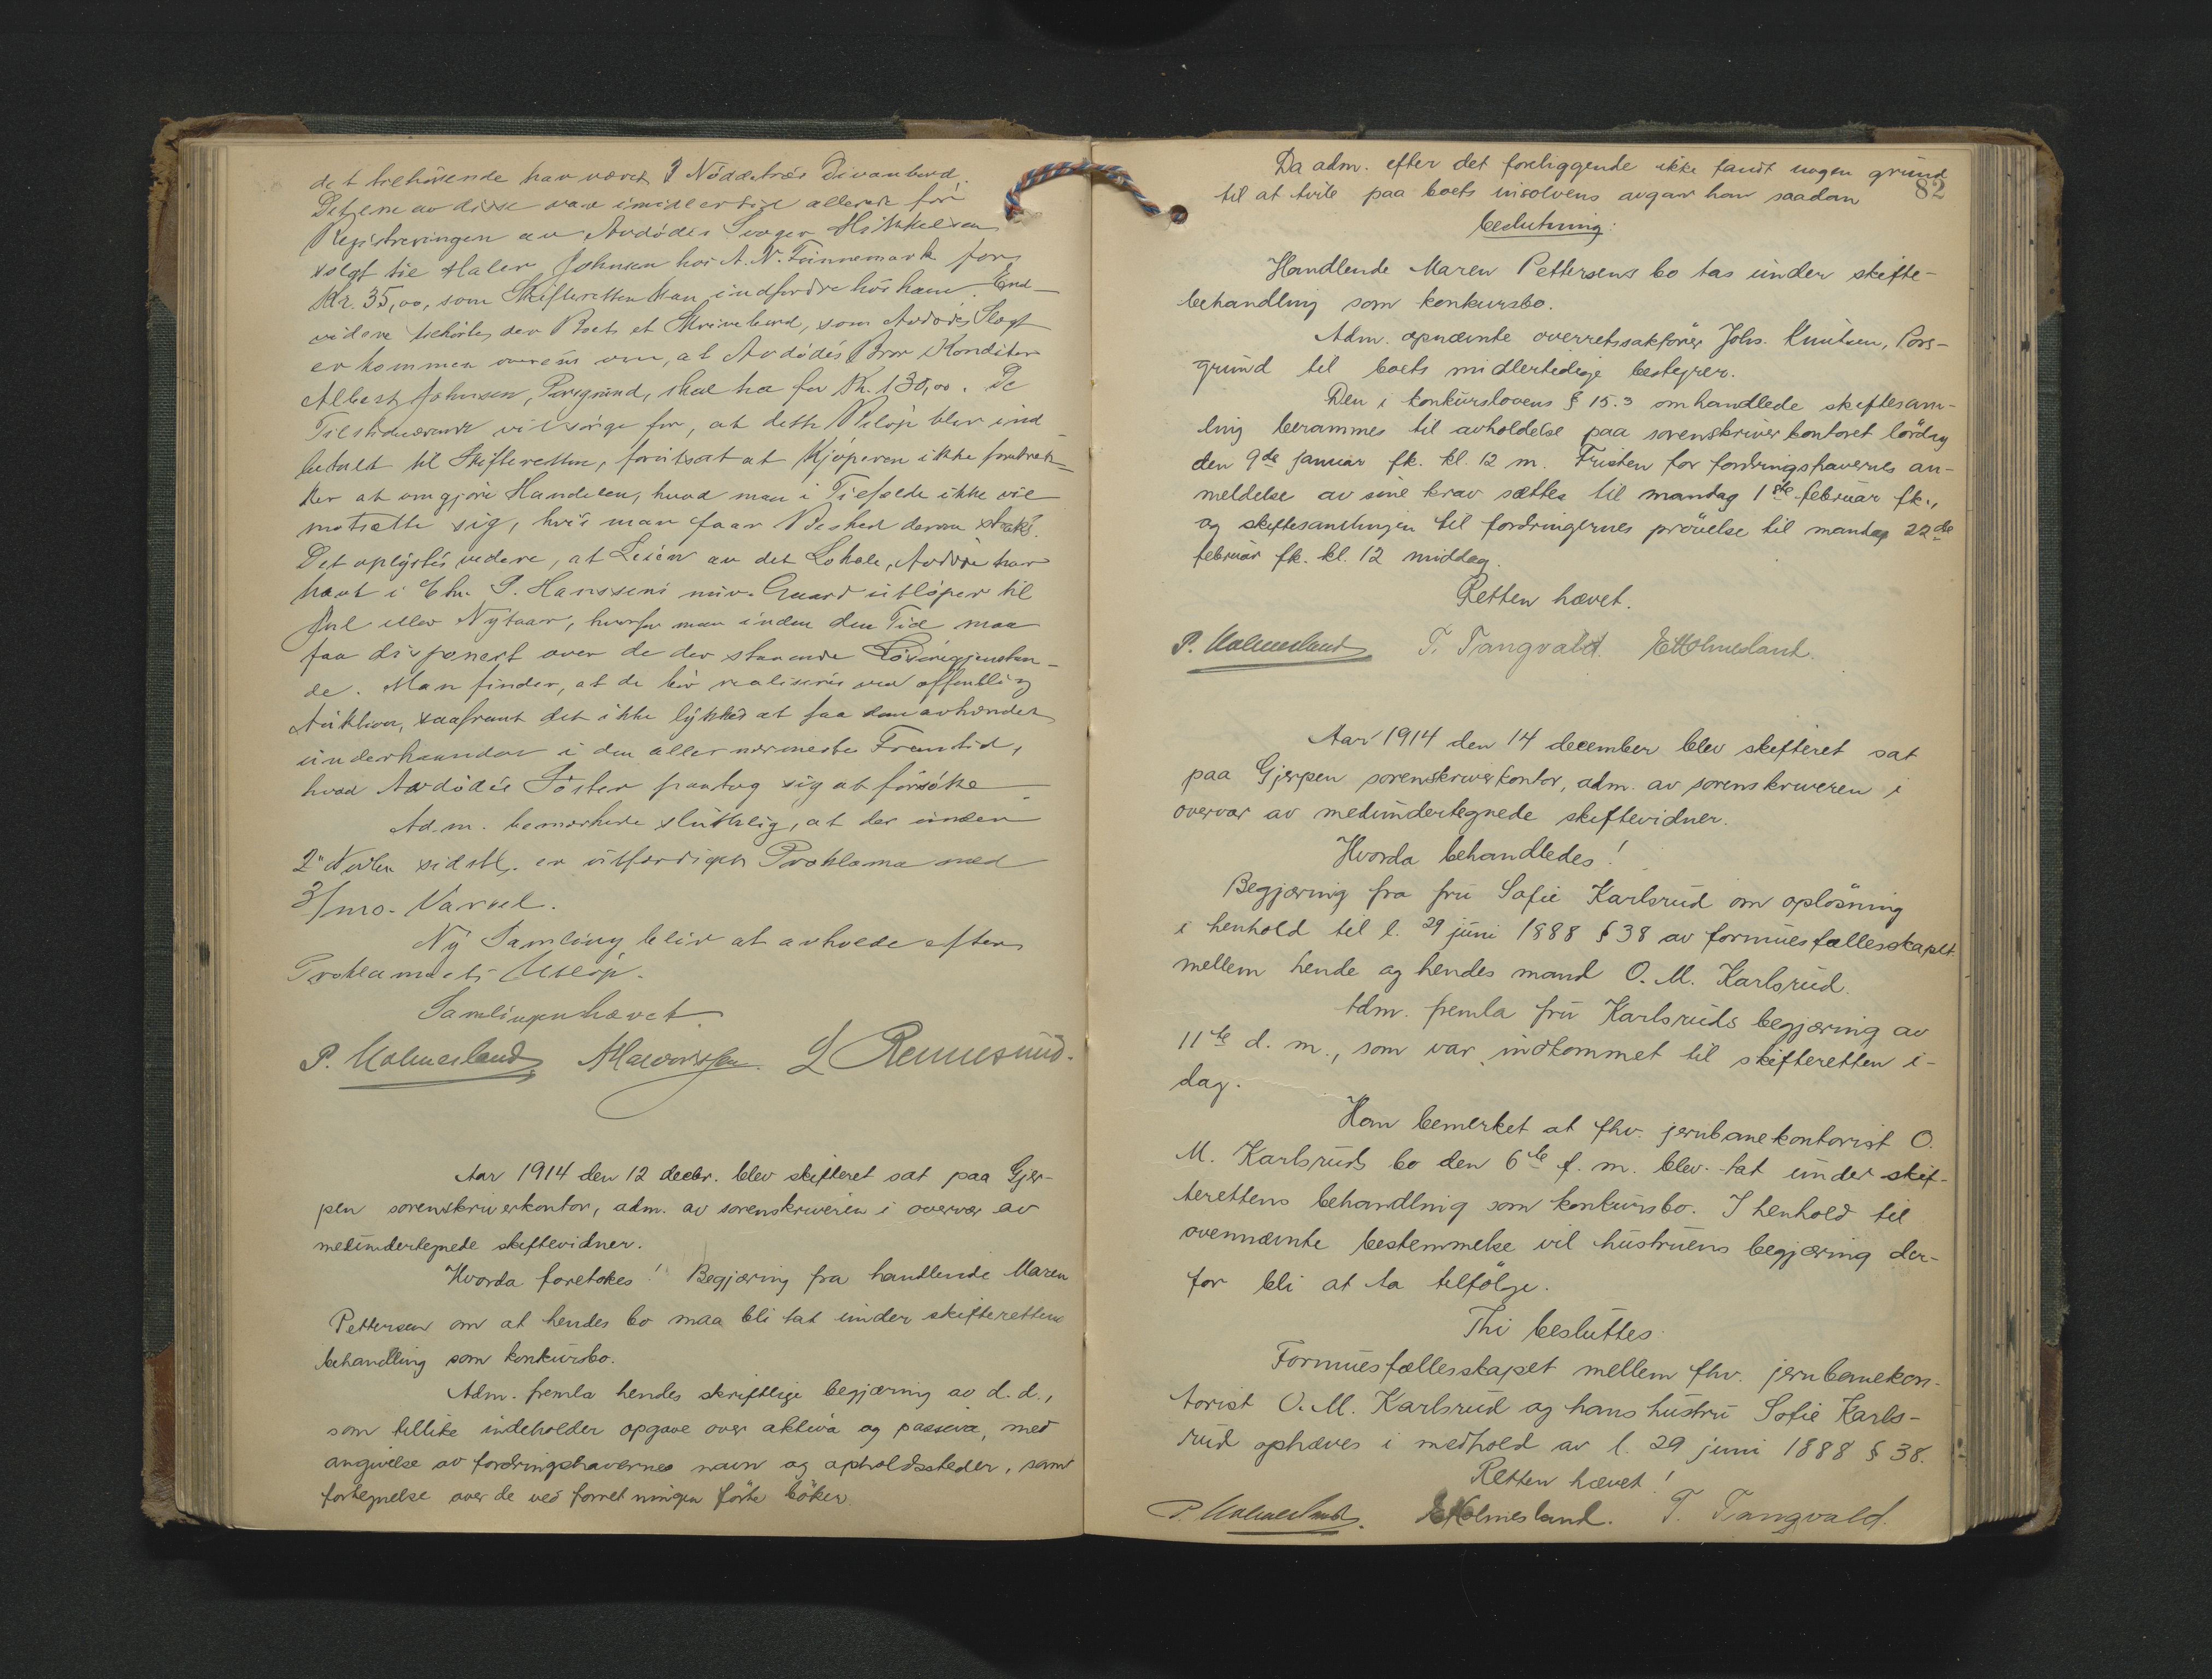 det tilhørende har været 2 Nöddetræs Divanbord.
Det ene av disse var imidlertid allerede för
Registreringen av Avdödes Svoger Mikkelsen
solgt til Maler Johnsen hos A. N. Finnemark for
Kr. 35,00, som Skifteretten kan indfordre hos ham. End-
videre tilhörte der Boet et Skrivebord, som Avdödes Slegt
er kommen overens om, at Avdödes Bror Konditor
Albert Johnsen, Porsgrund, skal ha for Kr. 130,00. De
Tilstedeværende vil sörge for, at dette Belöp blir ind-
betalt til Skifteretten, forutsat at Kjöperen ikke foretræk-
ker at omgjöre Handelen, hvad man i Tilfælde ikke vil
motsætte sig, hvis man faar Besked derom straks.
Det oplystes videre, at Leien av det Lokale, Avdöde har
havt i Chr. P. Hanssens Gaard utlöper til
Jul eller Nytaar, hvorfor man inden den Tid maa
faa disponert over de der staaende Lösöregjenstan-
de. Man finder, at de bör realiseres ved offentlig
Auktion, saafremt det ikke lykkes at faa dem avhændet
underhaanden i den allernærmeste Fremtid,
hvad Avdödes Söster paatog sig at forsöke.
Adm. bemerkede sluttelig, at der under
2 Novbr sidstl. er utfærdiget Proklama med
3/mo. Varsel.
Ny Samling blir at avholde efter
Proklamaets Utlöp.
Samlingen hævet.
P. Holmesland L Rennesund.
Aar 1914 den 12 decbr. blev skifteret sat paa Gjer-
pen sorenskriverkontor, adm. av sorenskriveren i overvær av
medundertegnede skiftevidner.
Hvorda foretokes! Begjæring fra handlende Maren
Pettersen om at hendes bo maa bli tat under skifterettens
behandling som konkursbo.
Adm. fremla hendes skriftlige begjæring av d. d.,
som tillike indeholder opgave over aktiva og passiva, med
angivelse av fordringshavernes navn og opholdssteder, samt
fortegnelse over de ved forretningen förte böker.
82
Da adm. efter det foreliggende ikke fandt nogen grund
til at tvile paa boets insolvens avgav han saadan
beslutning:
Handlende Maren Pettersens bo tas under skifte-
behandling som konkursbo.
Adm. opnævnte overretssakförer Johs. Knutsen, Pors-
grund til boets midlertidige bestyrer.
Den i konkurslovens § 15.3 omhandlede skiftesam-
ling berammes til avholdelse paa sorenskriverkontoret lördag
den 9de januar fk. kl. 12 m. Fristen for fordringshavernes an-
meldelse av sine krav sættes til mandag 1ste februar fk.,
og skiftesamlingen til fordringernes prövelse til mandag 22de
februar fk. kl. 12 middag.
Retten hævet.
P. Holmesland T. Tangvald. E Holmesland.
Aar 1914 den 14 december blev skifteret sat
paa Gjerpen sorenskriverkontor, adm. av sorenskriveren i
overvær av medundertegnede skiftevidner.
Hvorda behandledes!
Begjæring fra fru Sofie Karlsrud om oplösning
i henhold til l. 29 juni 1888 § 38 av formuesfællesskapet
mellem hende og hendes mand O. M. Karlsrud.
Adm. fremla fru Karlsruds begjæring av
11te d. m., som var indkommet til skifteretten i-
dag.
Han bemerket at fhv. jernbanekontorist O.
M. Karlsruds bo den 6te f. m. blev tat under skif-
terettens behandling som konkursbo. I henhold til
ovennævnte bestemmelse vil hustruens begjæring der-
for bli at ta tilfölge.
Thi besluttes:
Formuesfællesskapet mellem fhv. jernbanekon-
torist O. M. Karlsrud og hans hustru Sofie Karls-
rud ophæves i medhold av l. 29 juni 1888 § 38.
Retten hævet!
P. Holmesland. E Holmesland. T. Tangvald.